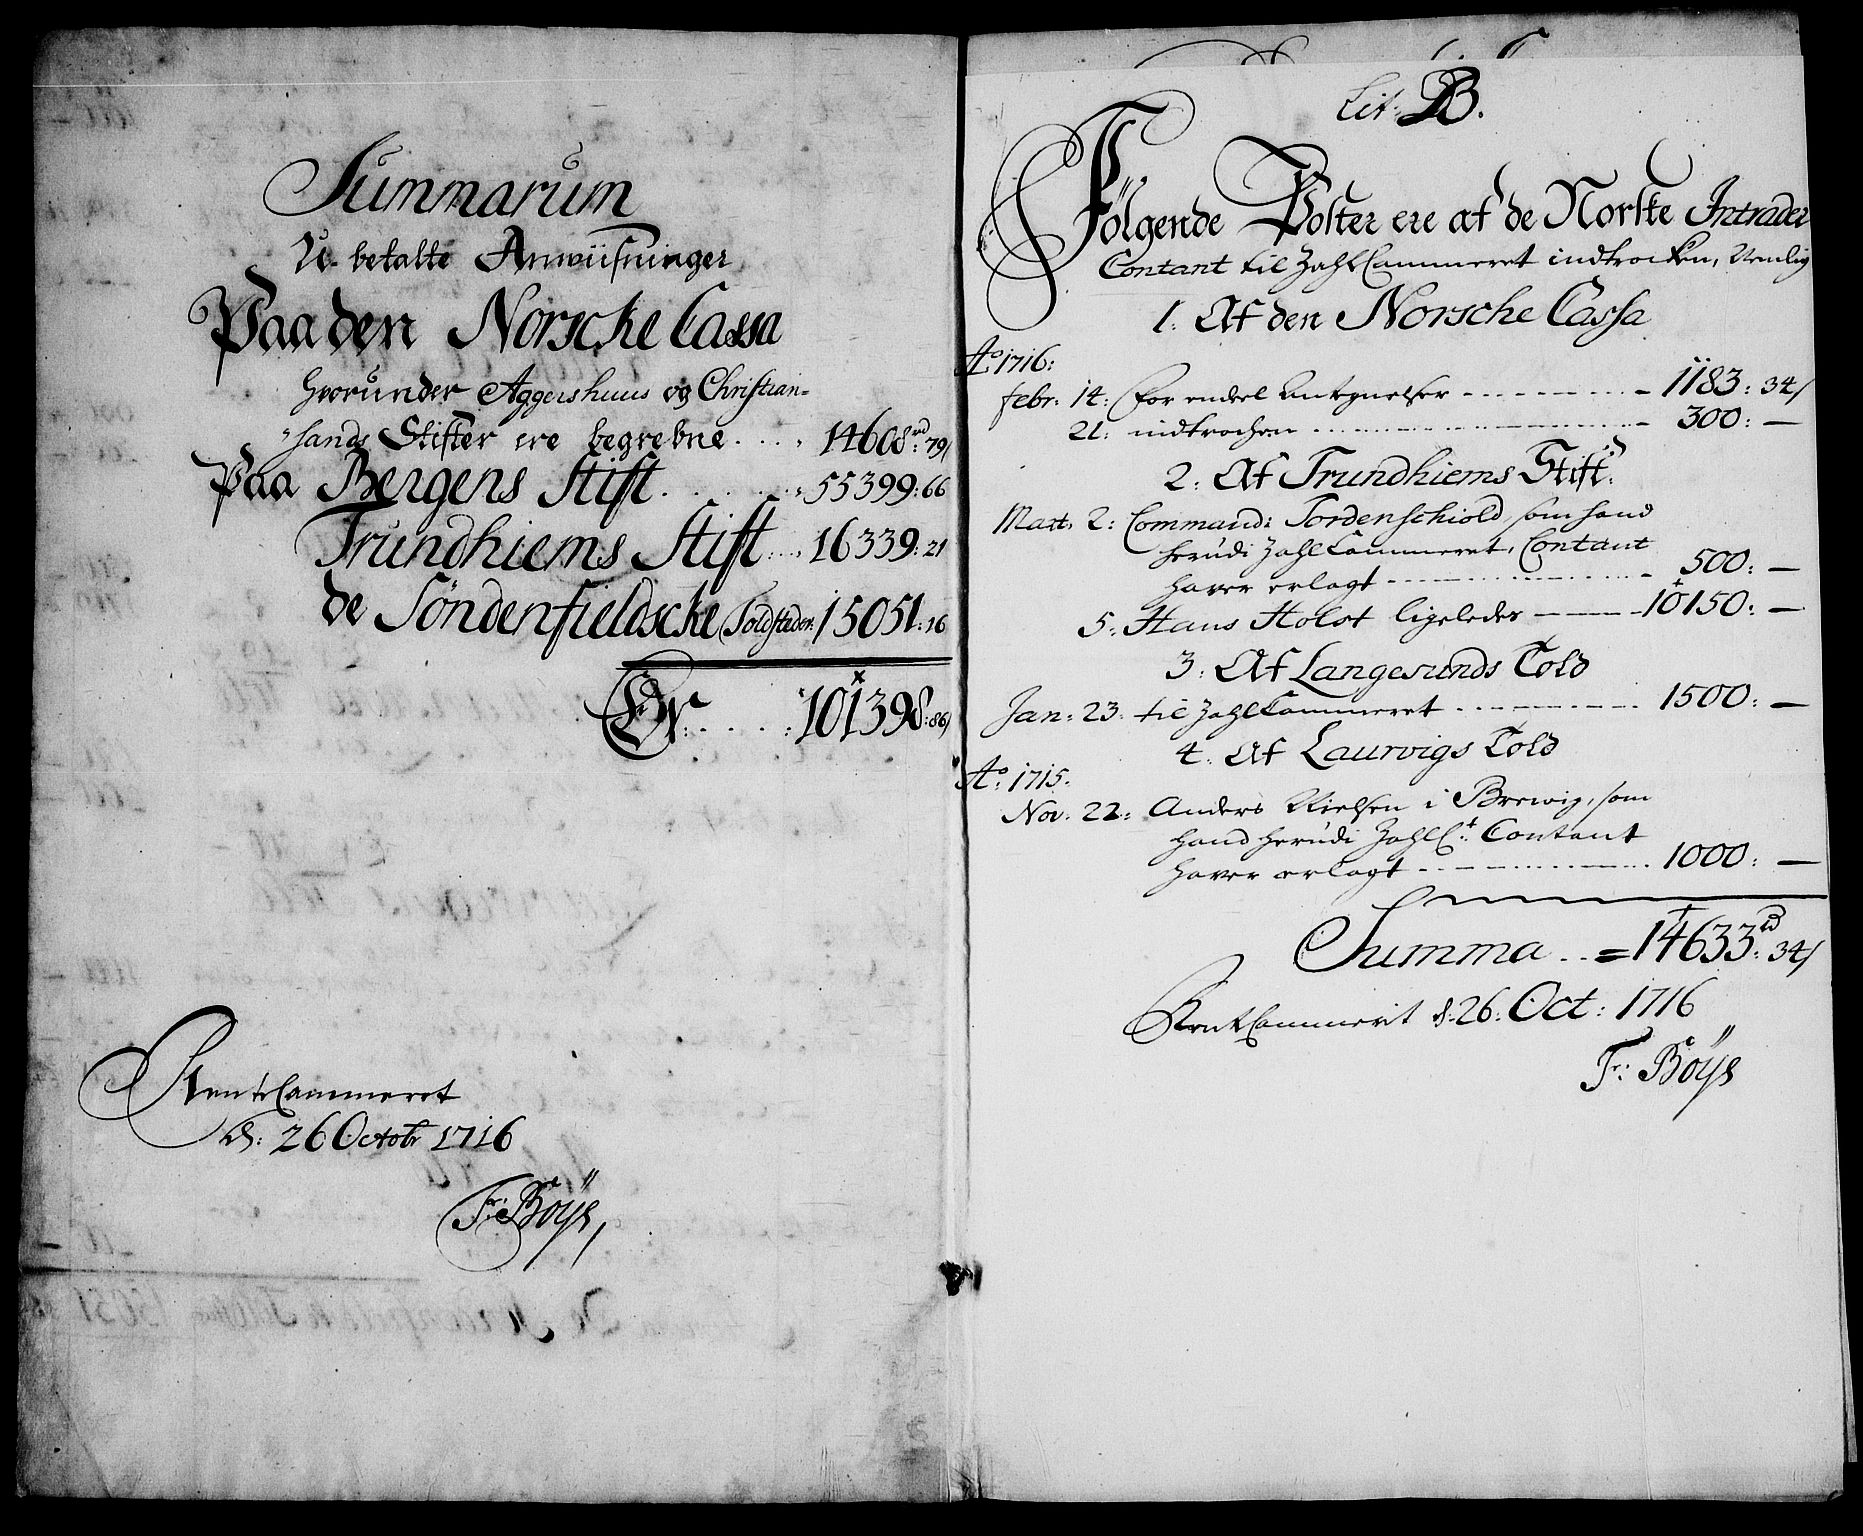 Summarum
U-betalte Anwiisninger
Paa den Norscke Cassa
hvorunder Aggershuus og Christian-
sands Stifter ere begrebne . . . . 14608 rd: 79/
Paa Bergens Stift . . . . . . 55399: 66
Trundhiems Stift . . . 16339: 21
de Søndenfieldscke Toldsteder. 15051: 16
Er . . . . : 101398: 86/
RenteCammeret
d: 26 Octobr 1716
Fr: Böÿs,
Lit: B.
Følgende Poster ere af de Norske Intrader
Contant til ZahlCammeret indtrocken, Nemlig
1. Af den Norsche Cassa
Ao 1716:
Febr: 14: for endeel Antegnelser - - - - 1183: 34/
21: indtrochen - - - - 300: —
2: Af Trundhiems Stift:
Mart: 2: Command: Tordenschiold, som hand
herudi ZahlCammeret, Contant
haver erlagt - - - - 500: —
5: Hans Holst ligeledes - - - 10150: —
3: Af Langesunds Told
Jan: 23: til ZahlCammeret - - - - 1500: —
4: Af Laurvigs Told
Ao: 1715.
Nov: 22: Anders Nielsen i Brewig, som
hand herudi ZahlC:t Contant
haver erlagt - - - - 1000: —
Summa . . = 14633 rd: 34/
RentCammerit d: 26: Oct: 1716
Fr: Böÿs